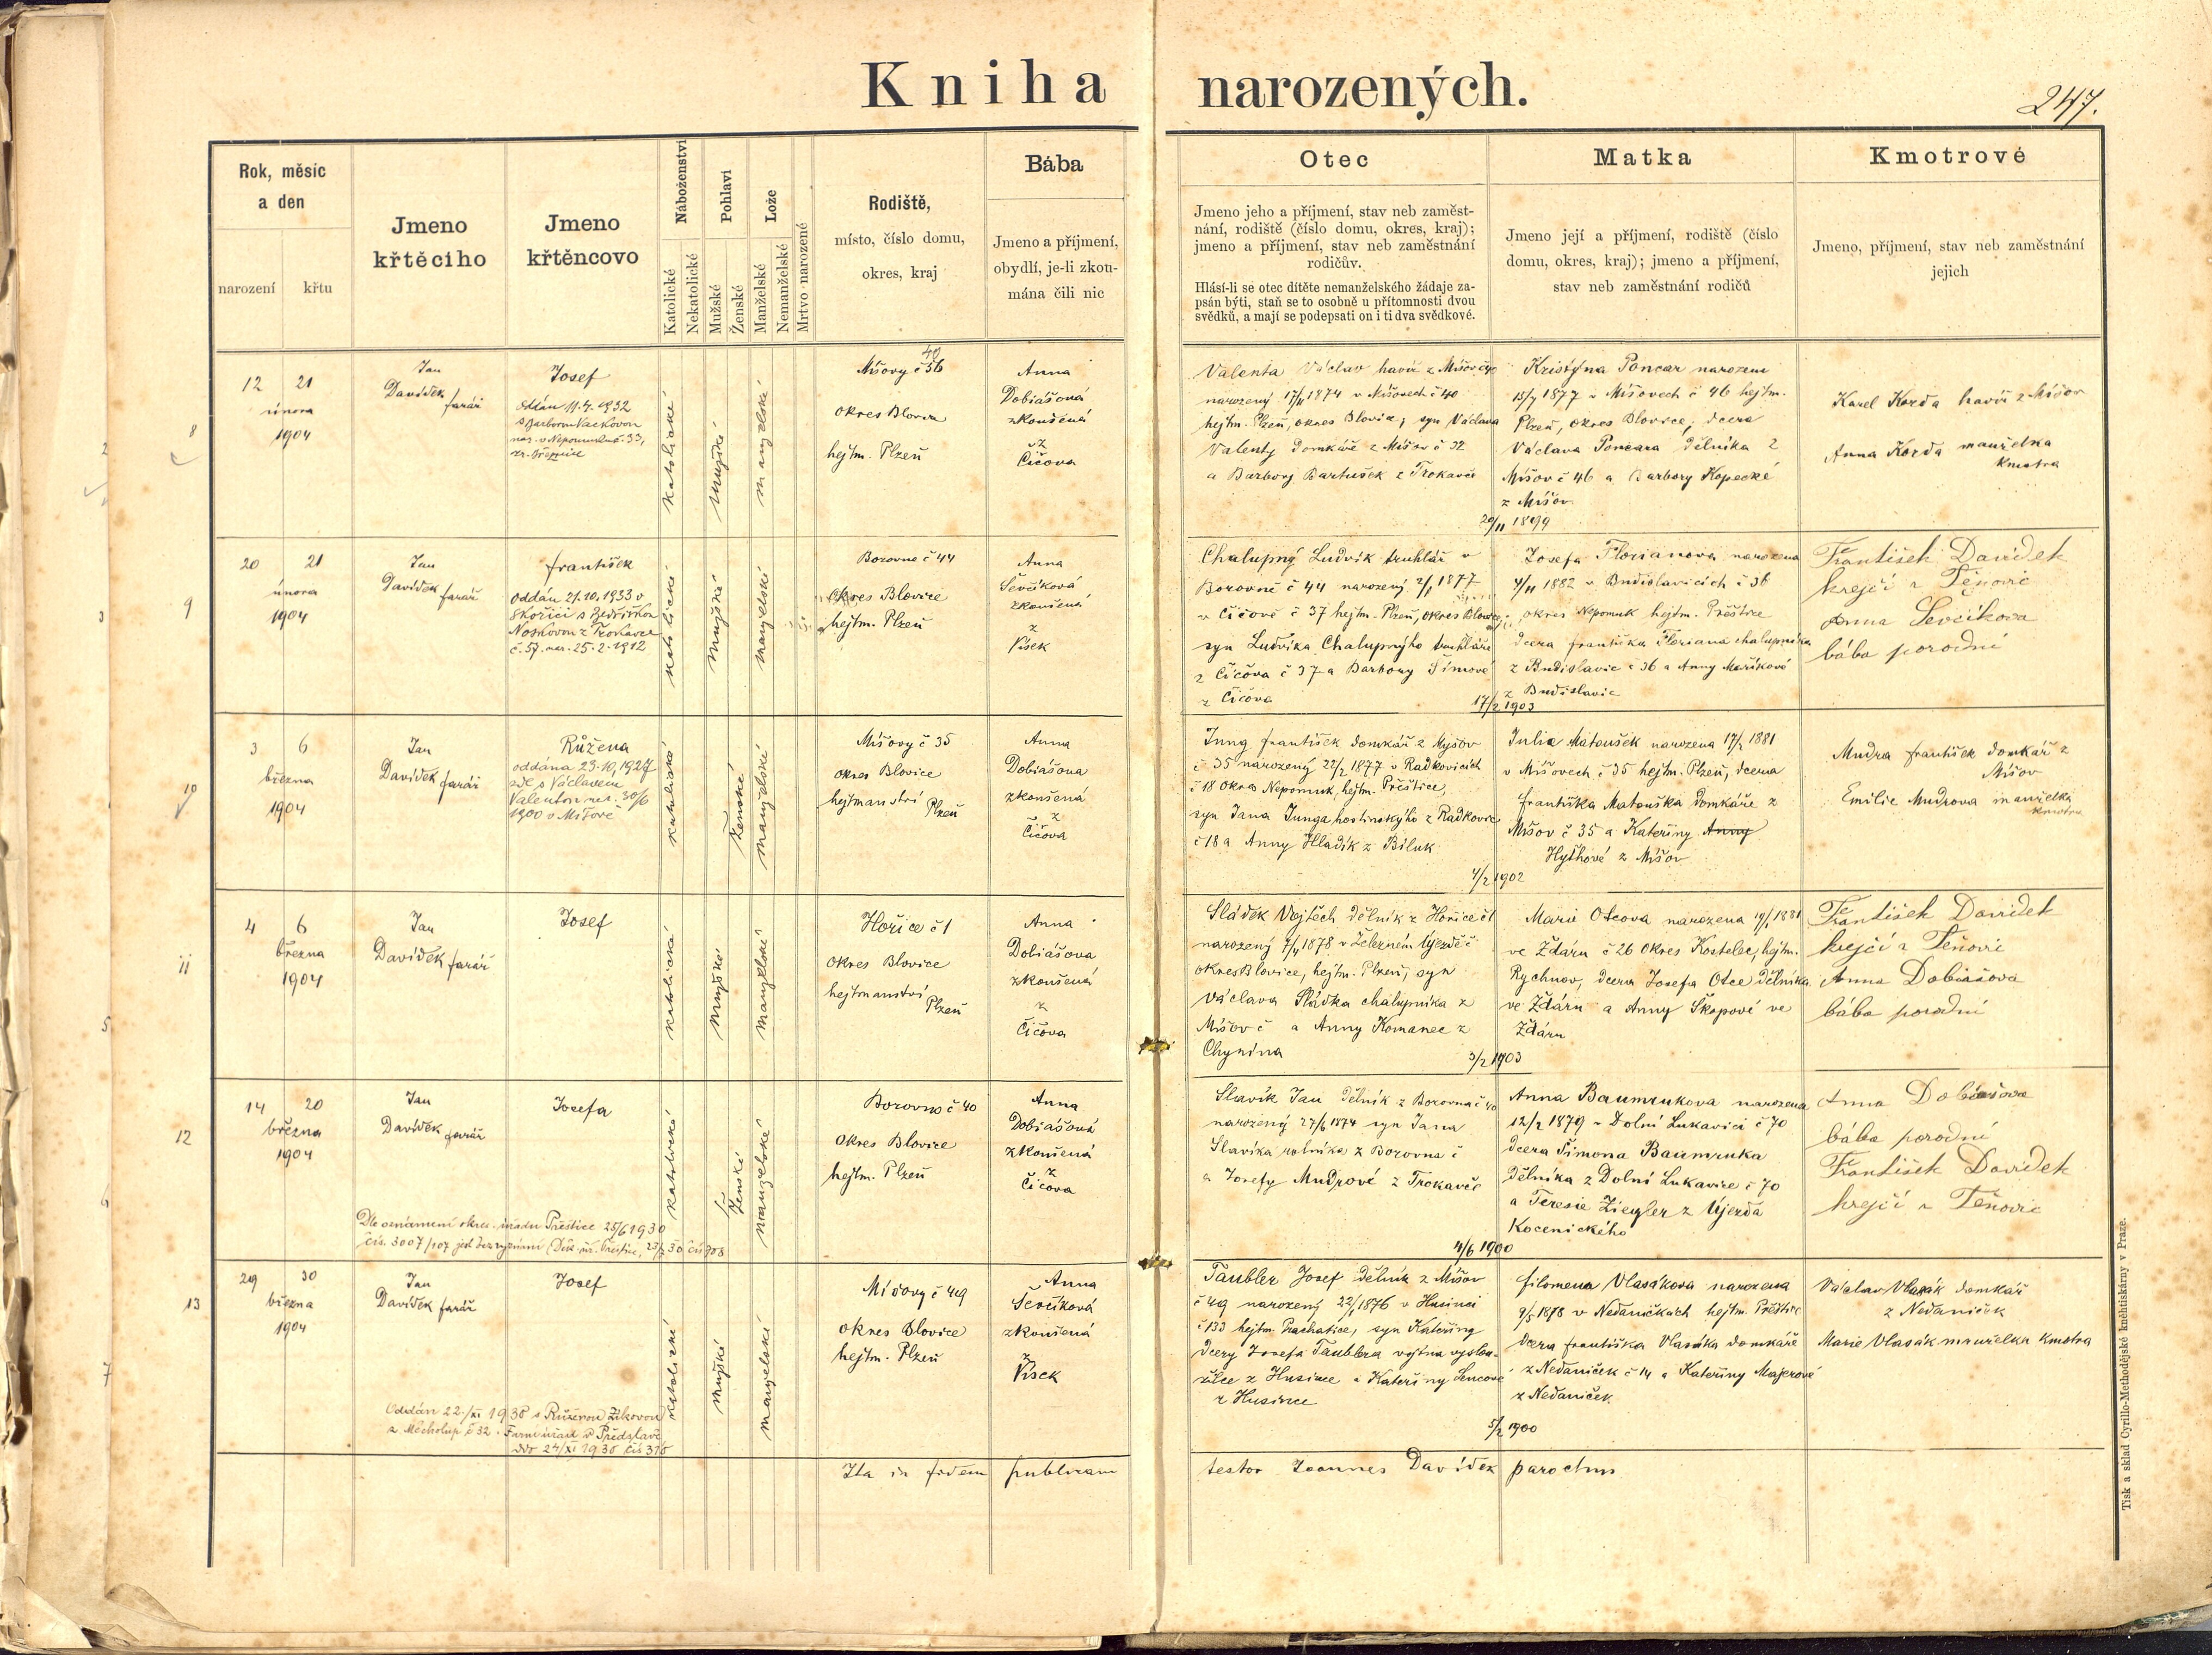 Kniha narozených.
247.
Rok, měsíc
a den
narození
křtu
Jmeno
křtěcího
Jmeno
křtěncovo
Náboženství
Katolické
Nekatolické
Pohlaví
Mužské
Ženské
Lože
Manželské
Nemanželské
Mrtvo narozené
Rodiště,
místo, číslo domu,
okres, kraj
Bába
Jmeno a příjmení,
obydlí, je-li zkou-
mána čili nic
Otec
Jmeno jeho a příjmení, stav neb zaměst-
nání, rodiště (číslo domu, okres, kraj);
jmeno a příjmení, stav neb zaměstnání
rodičův.
Hlásí-li se otec dítěte nemanželského žádaje za-
psán býti, staň se to osobně u přítomnosti dvou
svědků, a mají se podepsati on i ti dva svědkové.
Matka
Jmeno její a příjmení, rodiště (číslo
domu, okres, kraj); jmeno a příjmení,
stav neb zaměstnání rodičů
Kmotrové
Jmeno, příjmení, stav neb zaměstnání
jejich
8
12 21
února
1904
Jan
Davídek farář
Josef
oddán 11.7.1932
s Barborou Vackovou
nar. v Nepomuku č. 33,
katolické
mužské
manželské
40
Míšovy č 56
okres Blovice
hejtm. Plzeň
Anna
Dobiášová
zkoušená
z
Čičova
Valenta Václav havíř z Míšov č 40
narozený 17/11 1874 v Míšovech č 40
hejtm. Plzeň, okres Blovice; syn Václava
Valenty domkáře z Míšov č 32
a Barbory Bartušek z Trokavče
Kristýna Poncar narozena
13/7 1877 v Míšovech č 46 hejtm.
Plzeň, okres Blovice; dcera
Václava Poncara dělníka z
Míšov č 46 a Barbory Kopecké
z Míšov
20/11 1899
Karel Korda havíř z Míšov
Anna Korda manželka
kmotra
9
20 21
února
1904
Jan
Davídek farář
František
oddán 21.10.1933 v
Skořici s Bedřiškou
Noskovou z Trokavce
č. 57. nar. 25.2.1912
katolické
mužské
manželské
Borovno č 44
okres Blovice
hejtm. Plzeň
Anna
Ševčíková
zkoušená
z
Vísek
Chalupný Ludvík truhlář v
Borovně č 44 narozený 2/1 1877
v Čičově č 37 hejtm. Plzeň, okres Blovice;
syn Ludvíka Chalupnýho truhláře
z Čičova č 37 a Barbory Šimové
z Čičova
Josefa Florianova narozena
4/11 1882 v Budislavicích č 36
okres Nepomuk hejtm. Přeštice
dcera františka Floriana chalupníka
z Budislavic č 36 a Anny Maříkové
z Budislavic
17/2 1903
František Davídek
krejčí z Těnovic
Anna Ševčíkova
bába porodní
10
3 6
března
1904
Jan
Davídek farář
Růžena
oddána 23.10.1927
zde s Václavem
Valentou nar. 30/6
1900 v Míšově
katolické
Ženské
manželské
Míšovy č 35
okres Blovice
hejtmanství
Plzeň
Anna
Dobiášova
zkoušená
z
Čičova
Jung františek domkář z Myšov
č 35 narozený 22/2 1877 v Radkovicích
č 18 okres Nepomuk, hejtm. Přeštice,
syn Jana Junga hostinskýho z Radkovic
č 18 a Anny Hladík z Biluk
Julie Matoušek narozena 17/2 1881
v Míšovech č 35 hejtm. Plzeň, dcera
františka Matouška domkáře z
Míšov č 35 a Kateřiny Anny
Hyťhové z Míšov
4/2 1902
Mudra františek domkář z
Míšov
Emilie Mudrova manželka
kmotra
11
4 6
března
1904
Jan
Davídek farář
Josef
katolické
mužské
manželské
Hořice č 1
okres Blovice
hejtmanství
Plzeň
Anna
Dobiášova
zkoušená
z
Čičova
Sládek Vojtěch dělník z Hořice č 1
narozený 7/4 1878 v Železném Újezdě č
okres Blovice, hejtm. Plzeň, syn
Václava Sládka chalupníka z
Míšov č a Anny Komanec z
Chynína
Marie Otcova narozena 19/1 1881
ve Ždáru č 26 okres Kostelec, hejtm.
Rychnov, dcera Josefa Otce dělníka
ve Ždáru a Anny Škopové ve
Ždáru
3/2 1903
František Davídek
krejčí z Těnovic
Anna Dobiášova
bába porodní
12
14 20
března
1904
Jan
Davídek farář
Josefa
Dle oznámení okres. úřadu Přeštice 25/6 1930
čís. 3007/107 jest bez vyznání (Děk. úř. Přeštice, 23/7 30 čís 908
katolické
Ženské
manželské
Borovno č 40
okres Blovice
hejtm. Plzeň
Anna
Dobiášová
zkoušená
z
Čičova
Slavík Jan dělník z Borovna č 40
narozený 27/6 1874 syn Jana
Slavíka rolníka z Borovna č
a Josefy Mudrové z Trokavče
Anna Baumrukova narozena
12/2 1879 v Dolní Lukavici č 70
dcera Šimona Baumruka
dělníka z Dolní Lukavice č 70
a Teresie Ziegler z Újezda
Kocenického
4/6 1900
Anna Dobiášova
bába porodní
František Davídek
krejčí z Těnovic
13
29 30
března
1904
Jan
Davídek farář
Josef
Oddán 22./XI 1930 s Růženou Žikovou
z Měcholup č 32. Farní úřad v Předslavi
ddo 24/XI 1930 čís 310
katolické
mužské
manželské
Míšovy č 49
okres Blovice
hejtm. Plzeň
Anna
Ševčíková
zkoušená
z
Vísek
Taubler Josef dělník z Míšov
č 49 narozený 22/1 1876 v Husinci
č 133 hejtm. Prachatice, syn Kateřiny
dcery Josefa Taublera vojína vyslou-
žilce z Husince a Kateřiny Lencové
z Husince
filomena Vlasákova narozena
9/5 1878 v Nedaničkách hejtm. Přeštice
dcera františka Vlasáka domkáře
z Nedaniček č 14 a Kateřiny Majerové
z Nedaniček
5/2 1900
Václav Vlasák domkář
z Nedaniček
Marie Vlasák manželka kmotra
Ita in fidem publicam testor Joannes Davídek parochus
Tisk a sklad Cyrillo-Methodějské knihtiskárny v Praze.